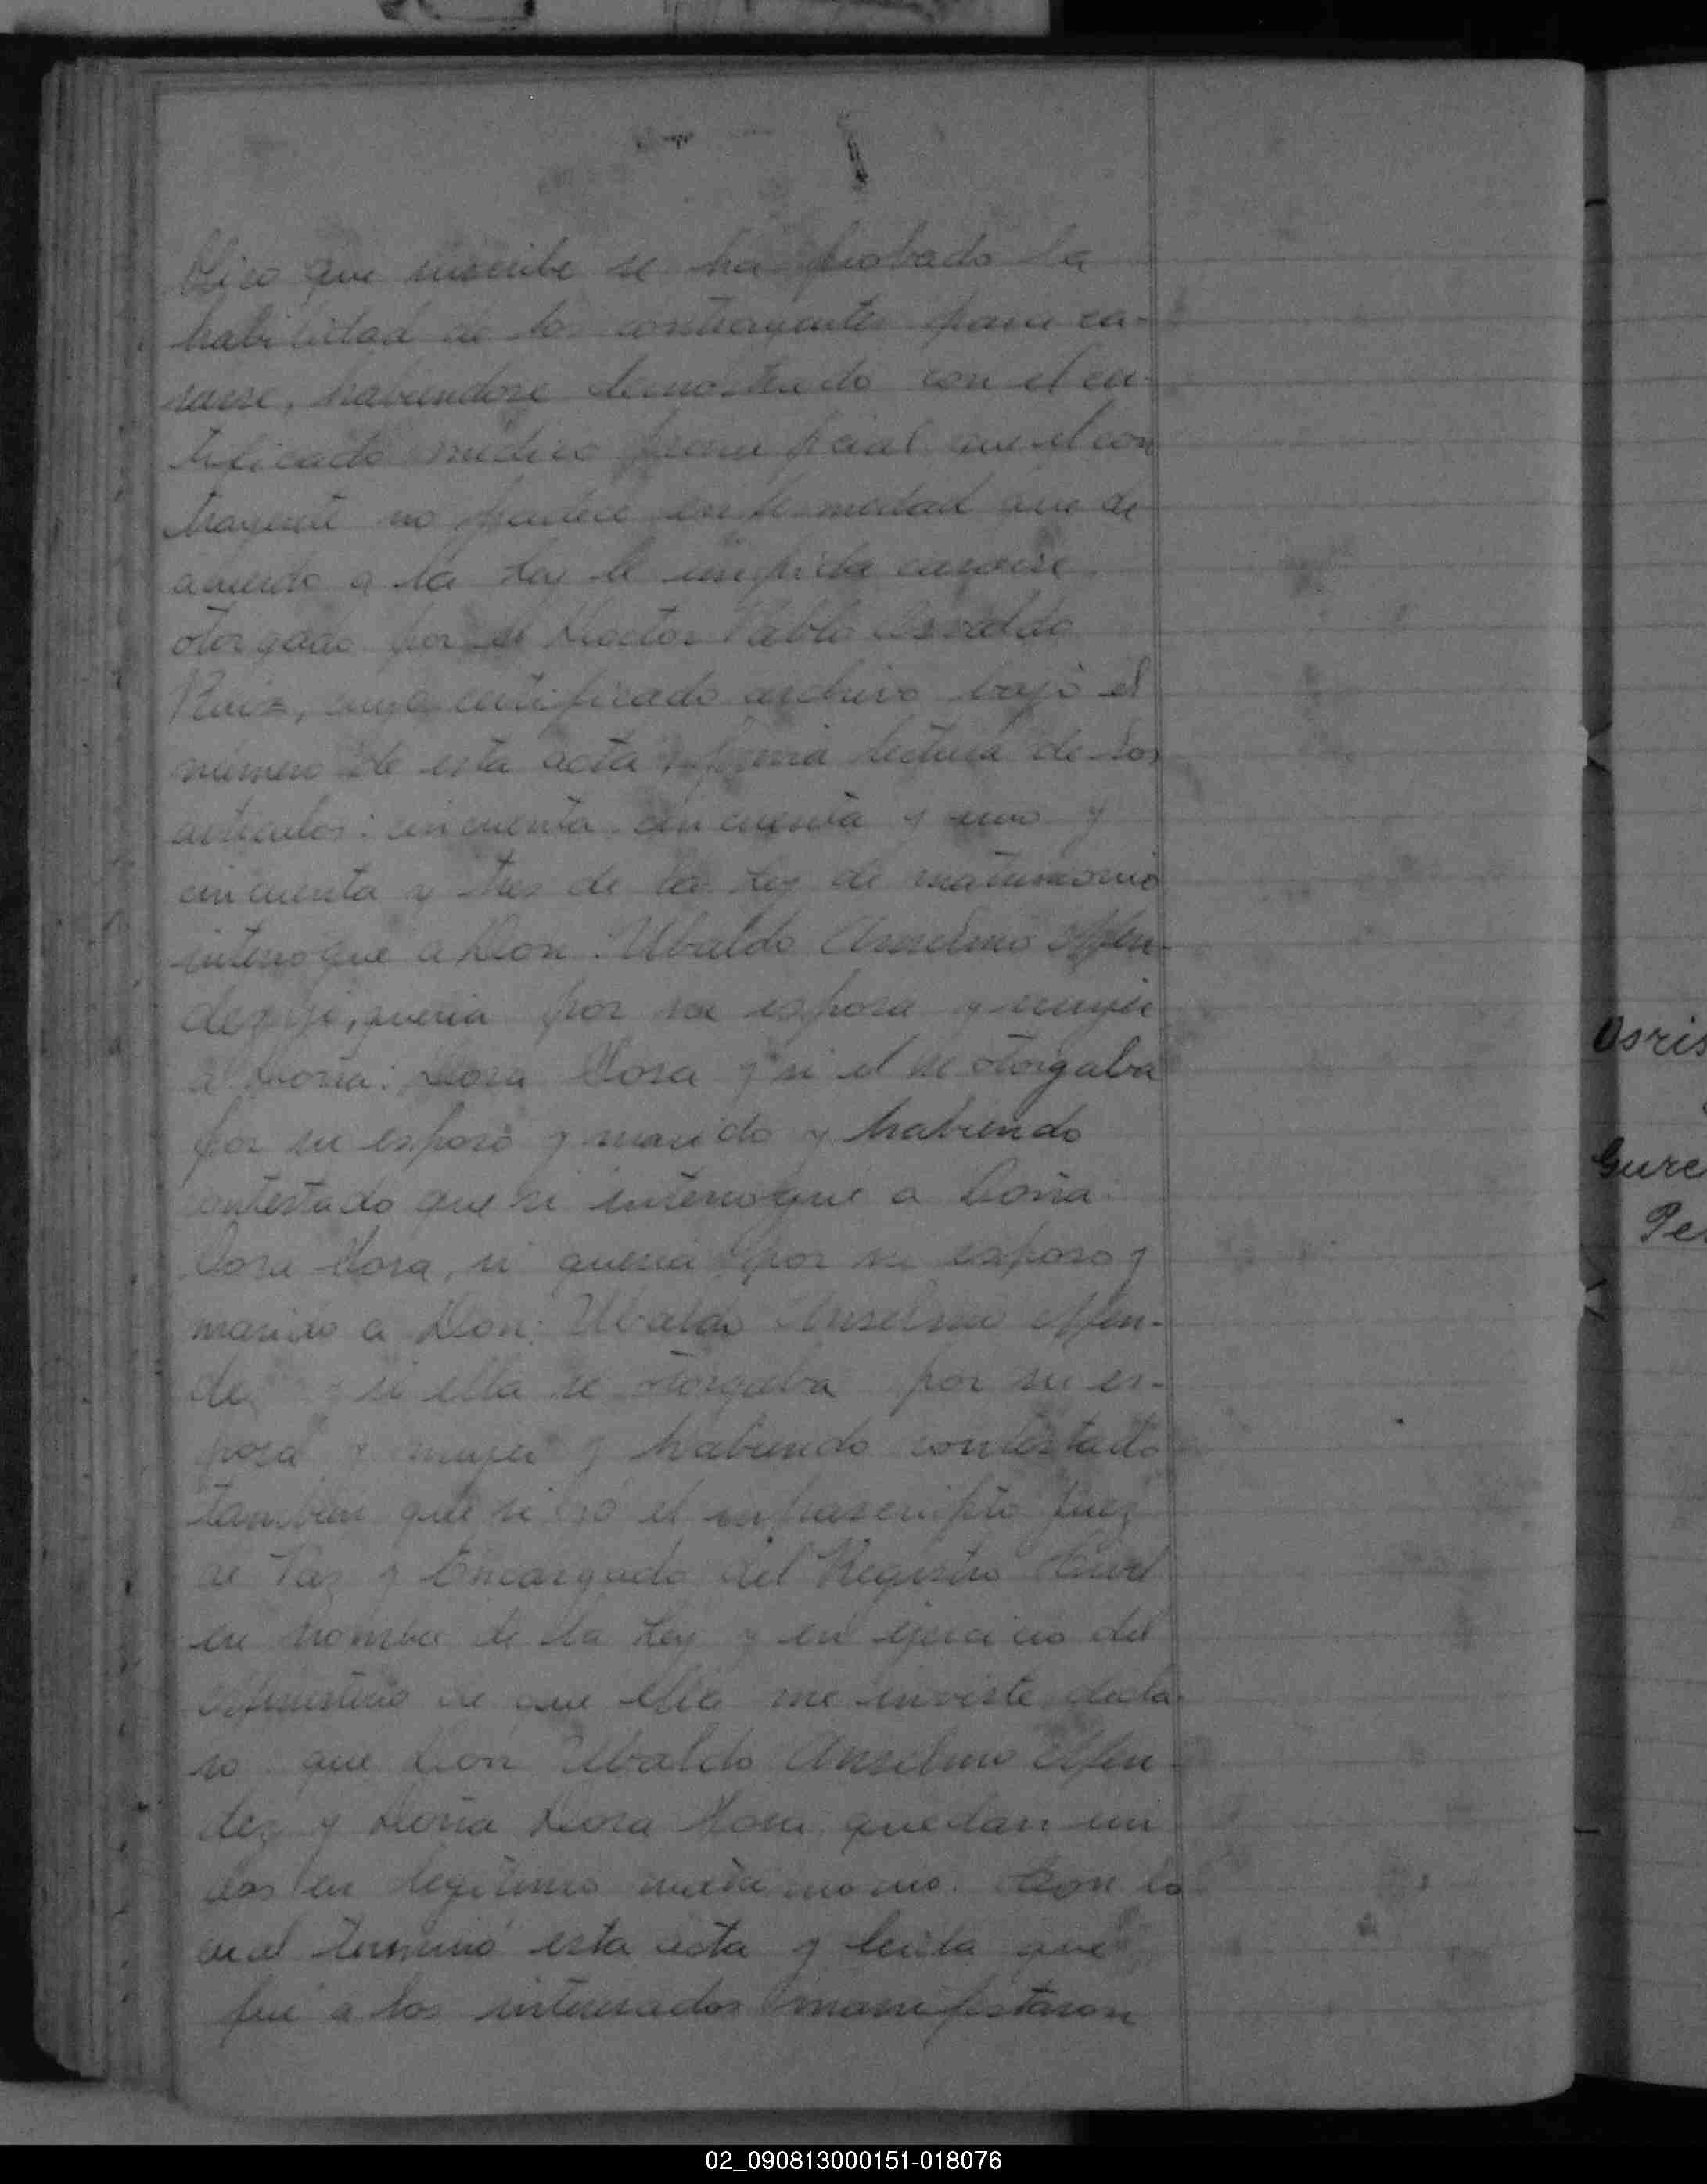 blico que suscribe se ha probado la
habilidad de los contrayentes para ca-
sarse, habiendose demostrado con el cer-
tificado médico prenupcial que el con
trayente no padece enfermedad que de
acuerdo a la Ley le impida casarse
otorgado por el Doctor Pablo Osvaldo
Ruiz, cuyo certificado archivo bajo el
número de esta acta, previa lectura de los
articulos: cincuenta, cincuenta y uno y
cincuenta y tres de la Ley de matrimonio
interrogue a Don: Ubaldo Anselmo Men-
dez si, queria por su esposa y mujer
a Doña: Dora Mora y si el se otorgaba
por su esposo y marido y habiendo
contestado que si interrogue a Doña:
Dora Mora, si queria por su esposo y
marido a Don: Ubaldo Anselmo Men-
dez y si ella se otorgaba por su es-
posa y mujer y habiendo contestado
tambien que si yo el infrascripto Juez
de Paz y Encargado del Registro Civil
en nombre de la Ley y en ejercicio del
Ministerio de que ella me inviste decla
ro que Don Ubaldo Anselmo Men-
dez y Doña Dora Mora quedan uni
dos en legítimo matrimonio. Con lo
cual terminó esta acta y leida que
fué a los interesados manifestaron
Osris
Gure
Pe
02_090813000151-018076